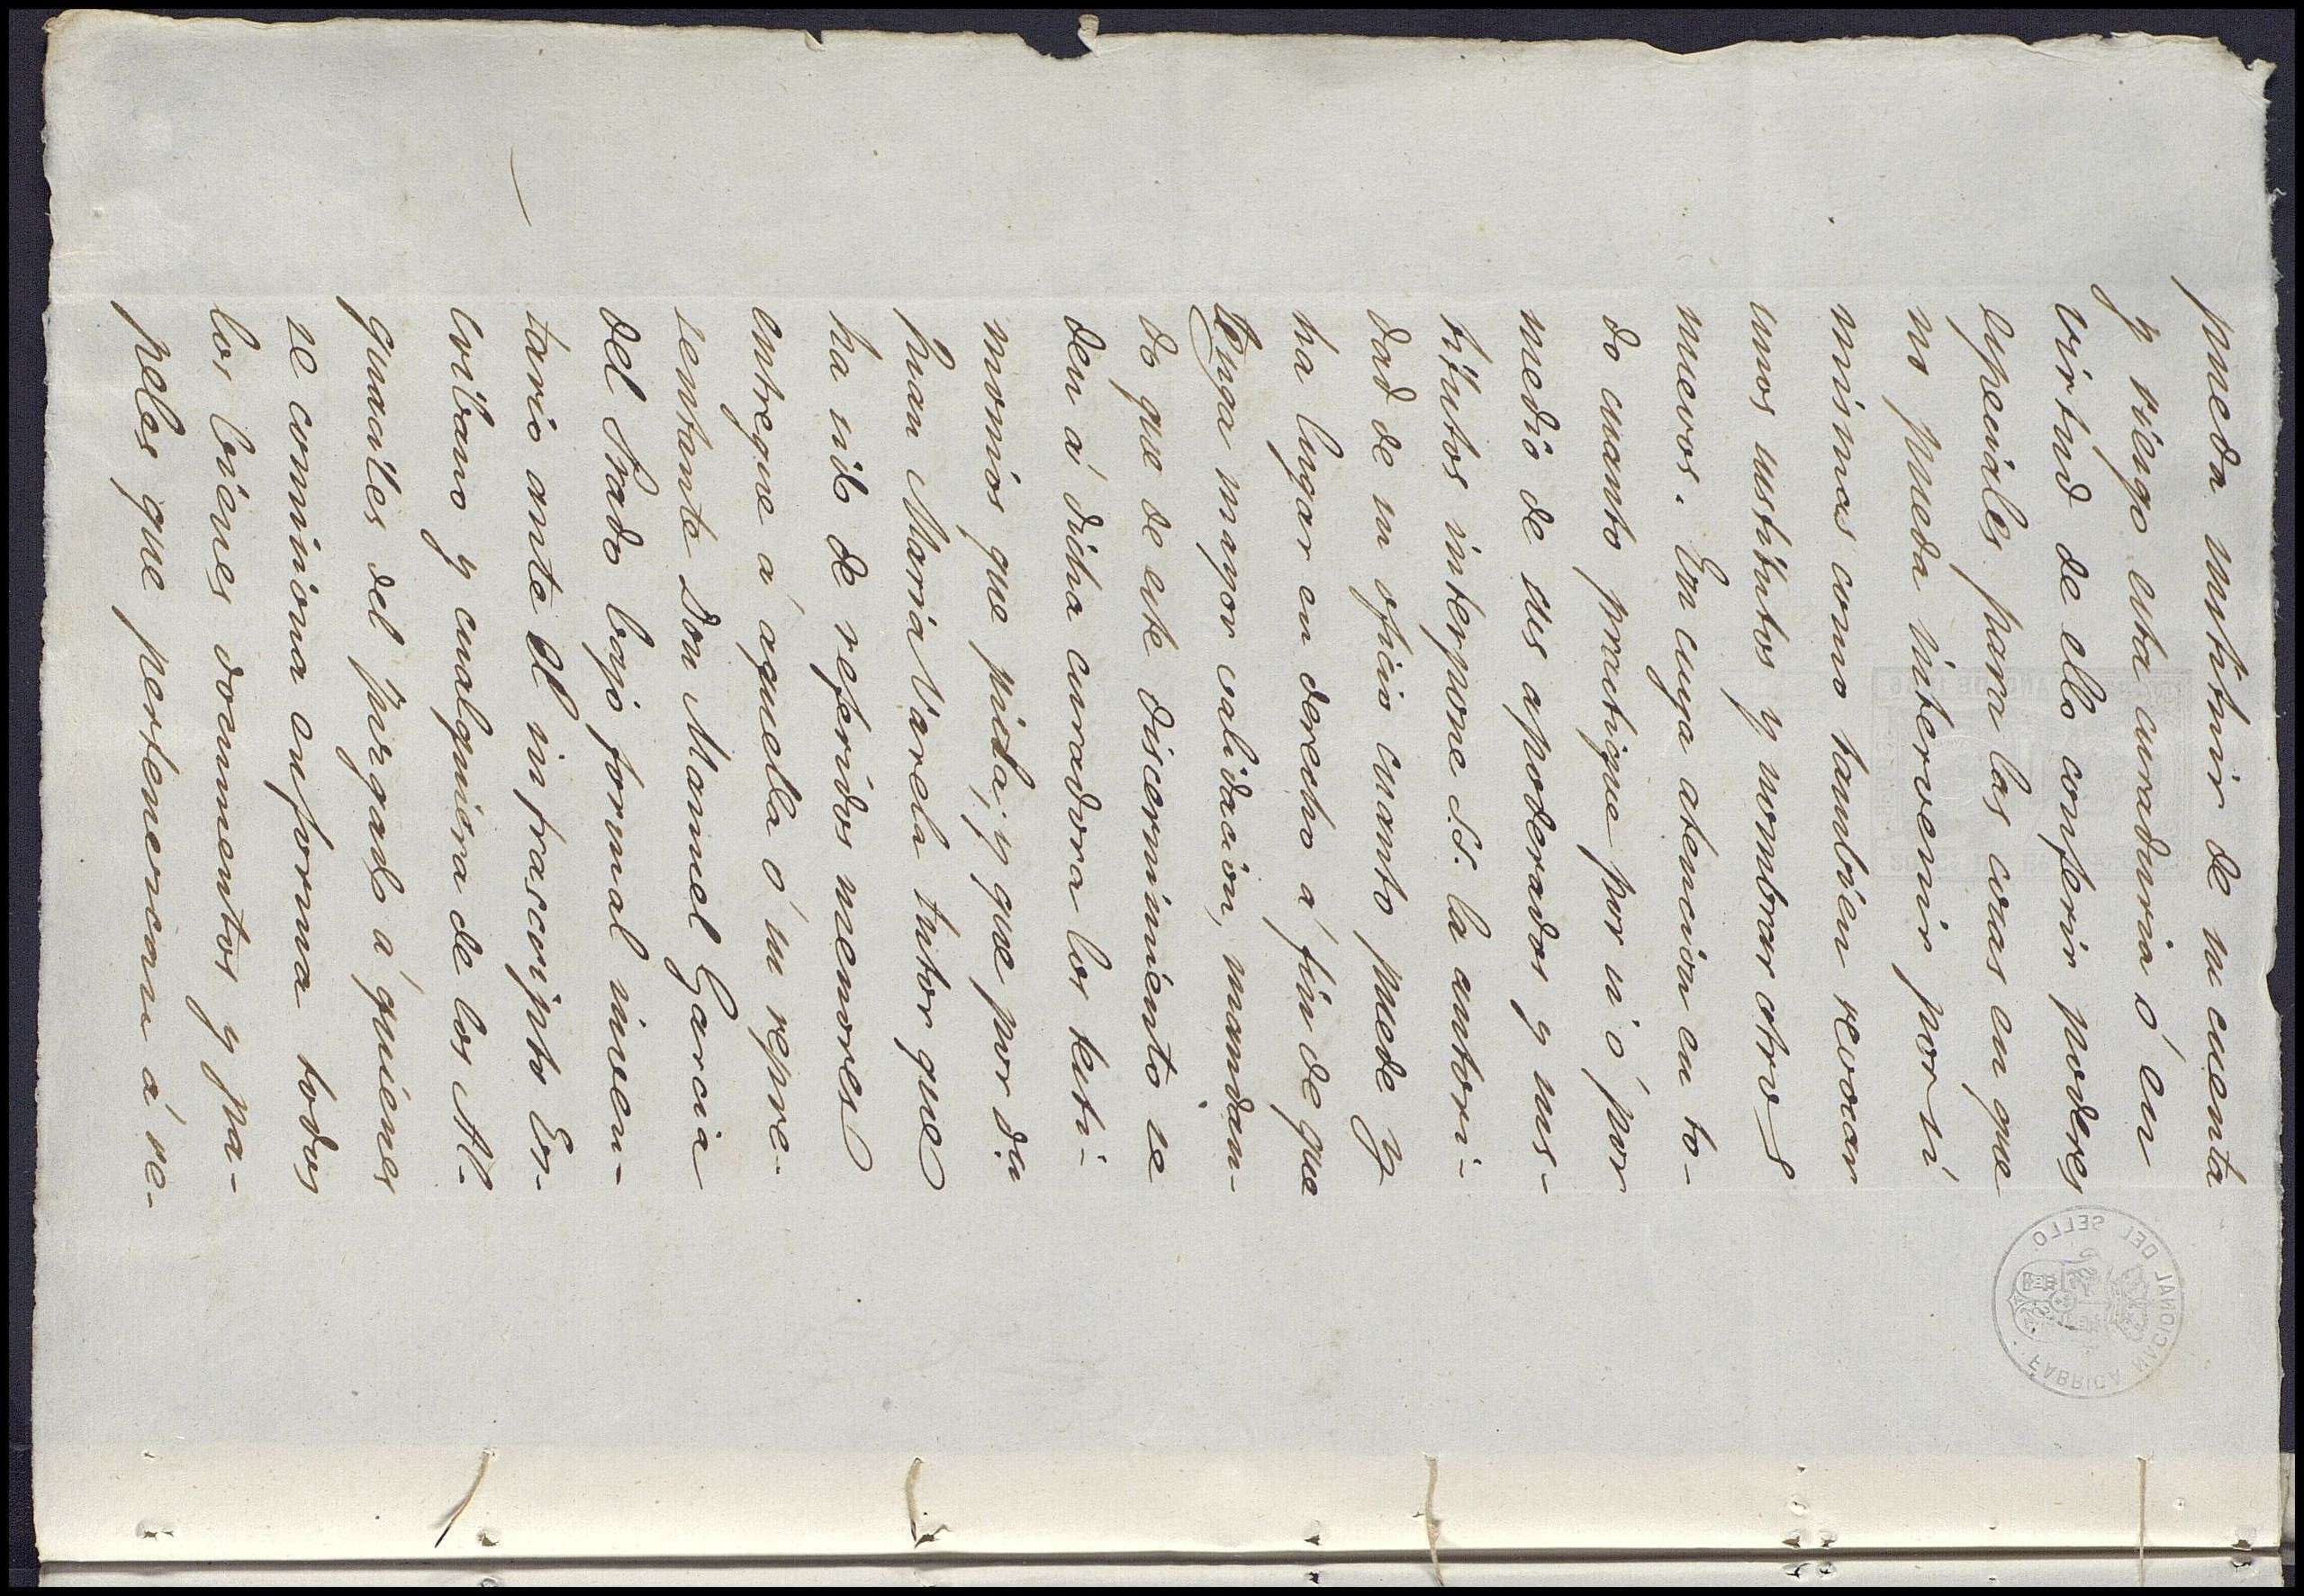 pueda sustituir de su cuenta
y riesgo esta curaduria ó en
virtud de ello conferir poderes
especiales para las cosas en que
no pueda intervenir por sí
mismas como tambien revocar
unos sustitutos y nombrar otros
nuevos. En cuya atencion en to-
do cuanto practique por sí ó por
medio de sus apoderados y sus-
titutos interpone S.S. la autori-
dad de su oficio cuanto puede y
ha lugar en derecho á fin de que
tenga mayor validacion, mandan-
do que de este discernimiento se
den á dicha curadora los testi-
monios que pida; y que por Dn
Juan Maria Varela tutor que
ha sido de referidos menores
entregue á aquella ó su repre-
sentante Don Manuel Garcia
del Prado bajo formal inven-
tario ante el infrascripto Es-
cribano y cualquiera de los Al-
guaciles del juzgado á quienes
se comisiona en forma todos
los bienes documentos y pa-
peles que pertenezcan á re-
FABRICA NACIONAL DEL SELLO